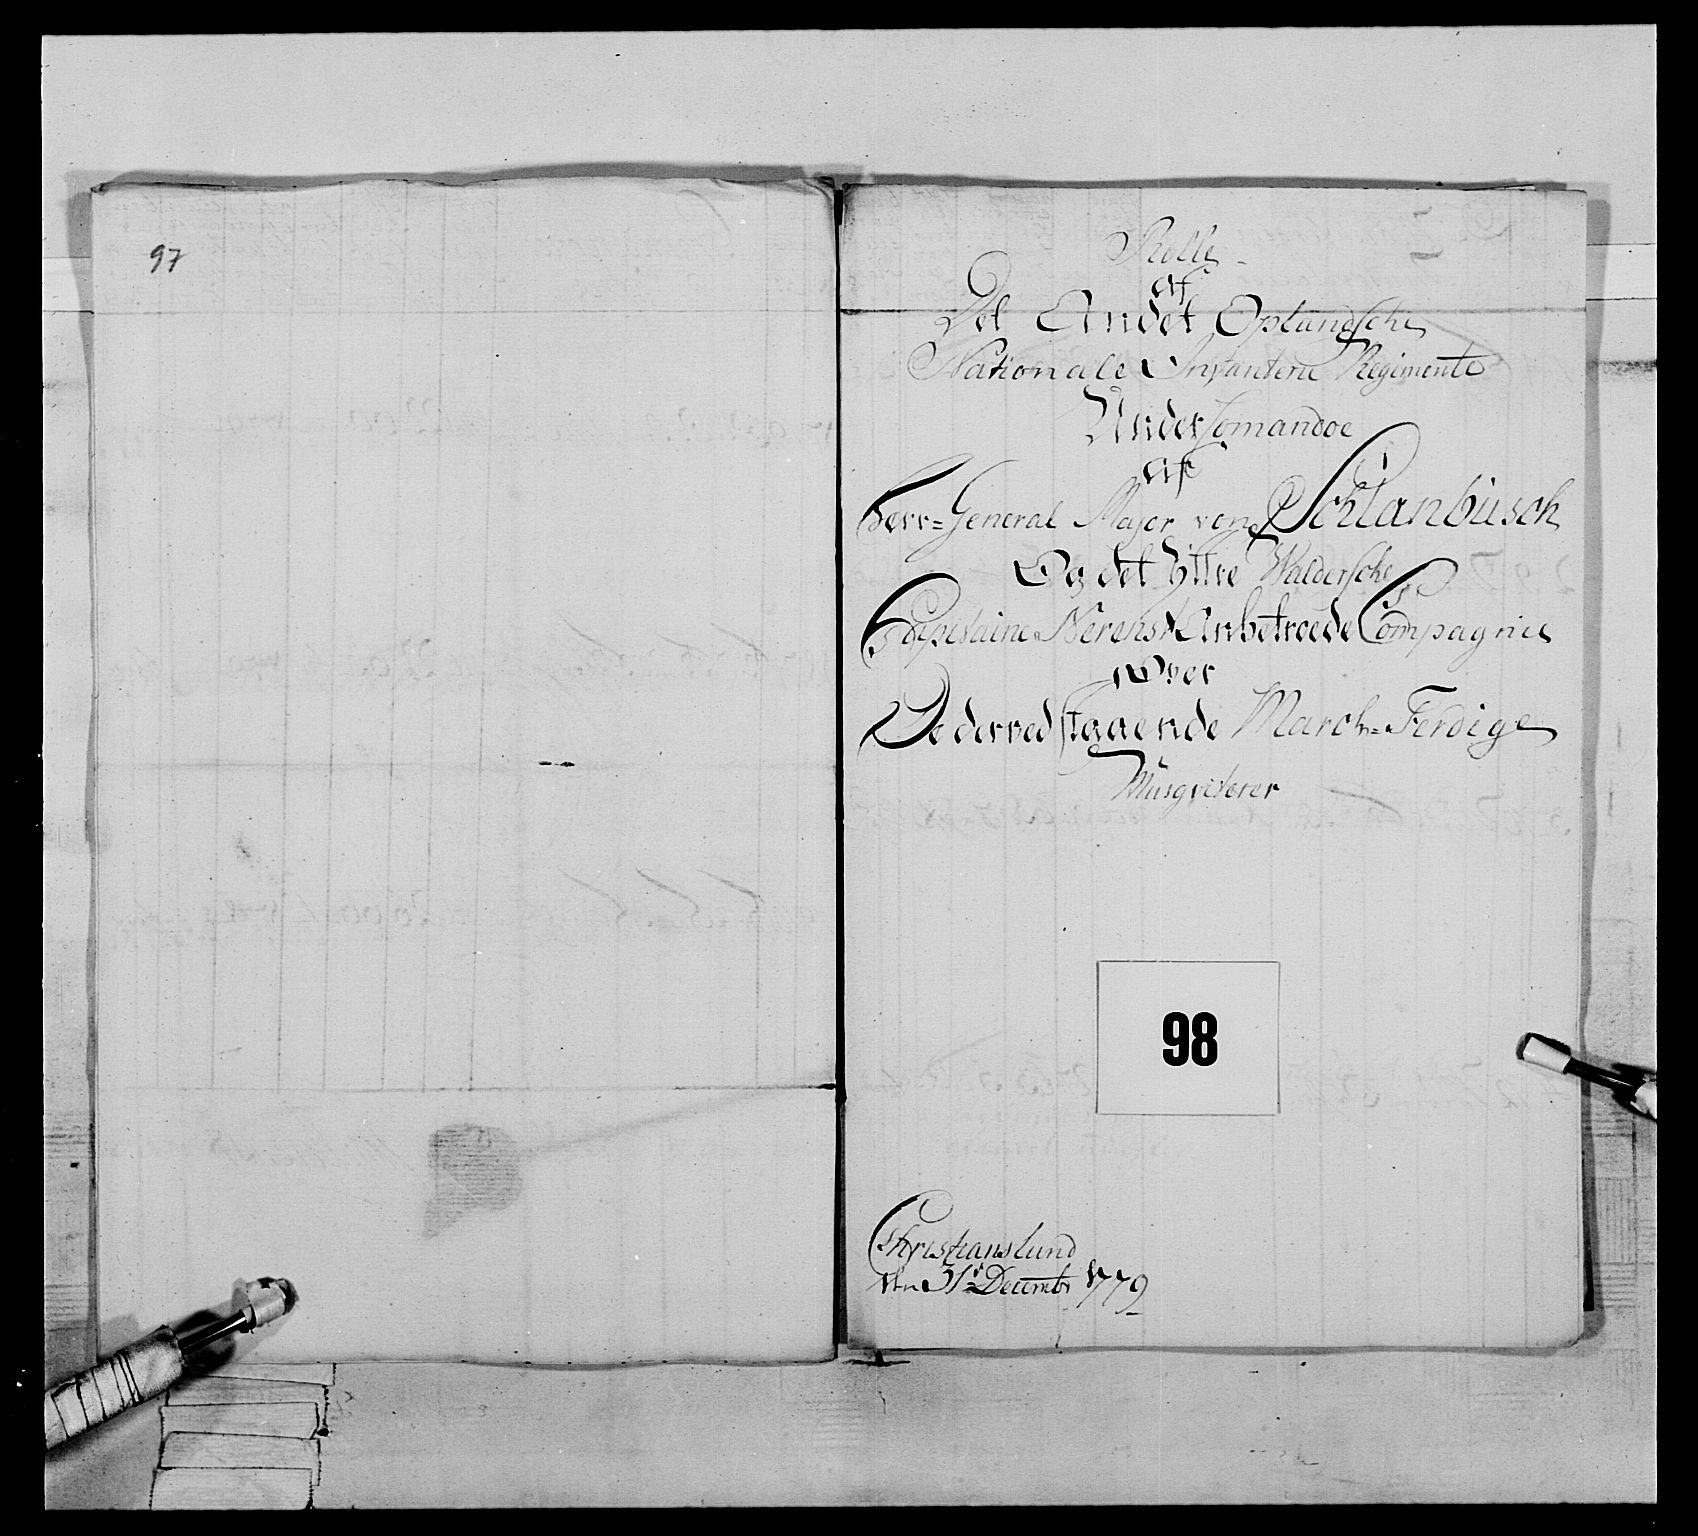 97
Rolle
af
Det Andet Oplandsche
Nationale Infanterie Regimente
Under Comandoe
af
Herr=General Major von Schlanbusch
Og det Yttre Waldersche
Capitaine Nerenst Anbetroede Compagnie
Over
De derved staaende March=Ferdige
Musqveterer
98
Christianslund
den 31te Decembr 1779